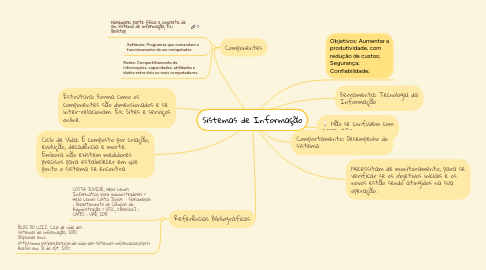 Hardware: parte física e concreta de
um sistema de informação, Ex:
Desktop
Software: Programas que comandam o
funcionamento de um computador.
Redes: Compartilhamento de
informações, capacidades, utilidades e
dados entre dois ou mais computadores.
Componentes
Estrutura: Forma como os
componentes são dimensionados e se
inter-relacionam. Ex: Sites e serviços
online.
Ciclo de Vida: É composto por criação,
evolução, decadência e morte.
Embora não existem medidores
precisos para estabelecer em que
ponto o sistema se encontra
COSTA JÚNIOR, Hélio Lemes
Informática para administradores /
Hélio Lemes Costa Júnior. – Florianópolis
: Departamento de Ciências da
Administração / UFSC;
CAPES : UAB, 2011
BLOG DO LUIZZ, Ciclo de vida dos
sistemas de informação, 2010
Disponível em:<
Acesso em: 31 de out. 2011
Referências Bibliográficas
Sistemas de Informação
Objetivos: Aumentar a
produtividade, com
redução de custos;
Segurança;
Confiabilidade;
Ferramenta: Tecnologia da
Informação
Não se confudem com
Comportamento: Desempenho do
sistema
Necessitam de monitoramento, para se
verificar se os objetivos iniciais e os
novos estão sendo atingidos na sua
operação.